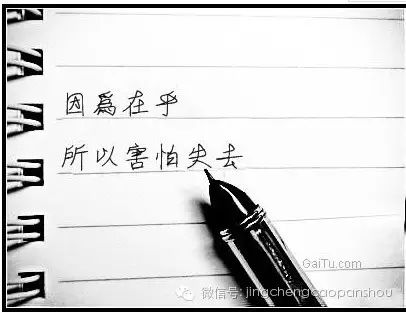 因爲在乎
所以害怕失去
GaiTu.com
微信号: jingchengcaopanshou